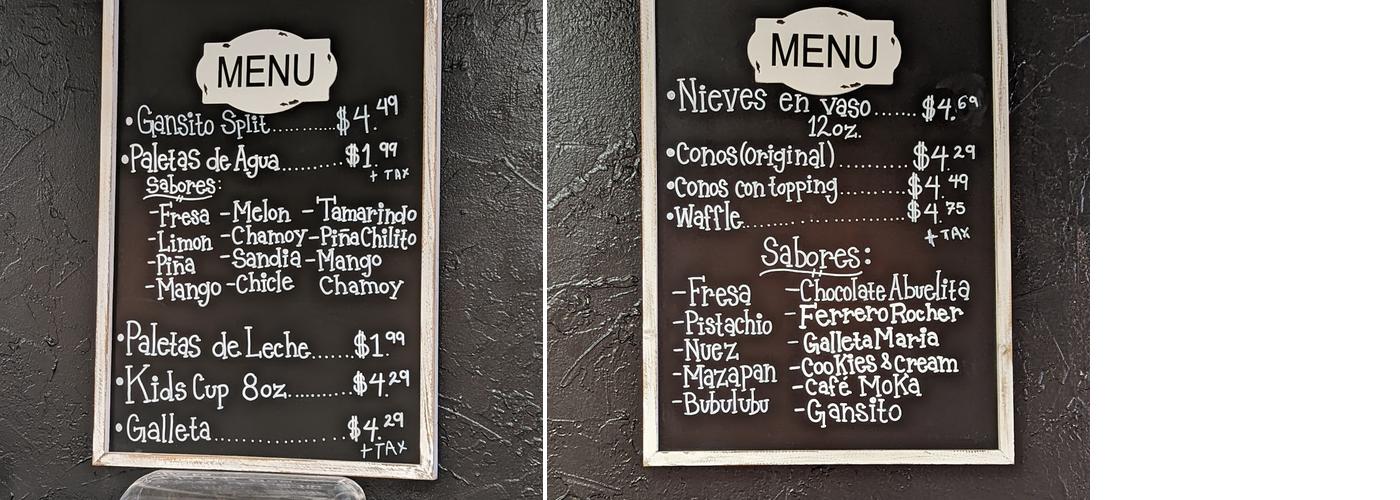 MENU
• Gansito Split..........$4.49
• Paletas de Agua........$1.99
+ TAX
Sabores:
-Fresa -Melon -Tamarindo
-Limon -Chamoy -PiñaChilito
-Piña -Sandia -Mango
-Mango -Chicle Chamoy
• Paletas de Leche......$1.99
• Kids Cup 8oz..........$4.29
• Galleta...............$4.29
+TAX
MENU
• Nieves en vaso.......$4.69
12oz.
• Conos(original)..........$4.29
• Conos con topping.........$4.49
• Waffle......................$4.75
+ TAX
Sabores:
-Fresa -Chocolate Abuelita
-Pistachio -Ferrero Rocher
-Nuez -Galleta Maria
-Mazapan -Cookies & Cream
-Bubulubu -Café Moka
-Gansito